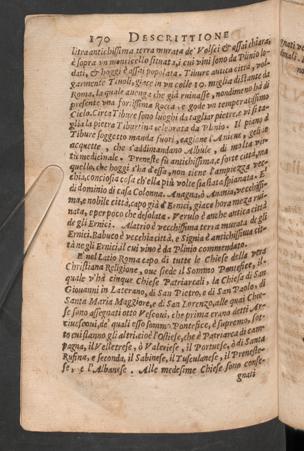 170 DESCRITTIONE
litra antichissima terra murata de' Volsci & assai chiara,
è sopra un monticello situata, i cui vini sono da Plinio lo-
dati, & hoggi è assai popolata. Tiburo antica città, vol-
garmente Tiuoli, giace in un colle 19. miglia distante da
Roma, la quale ancora che già ruinasse, nondimeno hà di
presente una fortissima Rocca: e gode un temperatissimo
Cielo. Circa Tibure sono luoghi da tagliar pietre. e vi si ta
glia la pietra Tiburtina celebrata da Plinio. Il piano di
Tibure soggetto manda fuori, cagione l'Aniene, geli
acquette, che s'addimandano Albule, di molta vir-
tù medicinale. Preneste fù antichissima, e forte città, ma
quello, che hoggi s'hà d'essa, non tiene l'ampiezza vec-
chia, conciosia cosa ch'ella più volte sia stata spianata. E
di dominio di casa Colonna. Anagna, ò Anania, vecchissi-
ma, e nobile città, capo già d'Ernici, giace hora mezo rui-
nata, e per poco che desolata. Verulo è anche antica città
de gli Ernici. Alatrio è vecchissima terra murata de gli
Ernici. Babuco è vecchia città, e Signia è antichissima cit-
tà ne gli Ernici, il cui vino è da Plinio commendato.
E nel Latio Roma capo di tutte le Chiese della vera
Christiana Religione, oue siede il Sommo Pontefice, il
quale v'hà cinque Chiese Patriarcali, la Chiesa di San
Giouanni in Laterano, di San Pietro, e di San Paolo, di
Santa Maria Maggiore, e di San Lorenzo, alle quai Chie-
se sono assegnati otto Vescoui, che prima erano detti
Vescoui, de' quali esso sommo Pontefice, è supremo, sot-
to cui stanno gli altri cioè l'Ostiese, che è Patriarca de
pagna, il Velletrese, ò Valeriese, il Portuese, ò di Santa
Rufina, e seconda, il Sabinese, il Tusculanese, il Preneste-
se, e l'Albanese. Alle medesime Chiese sono conse-
gnati